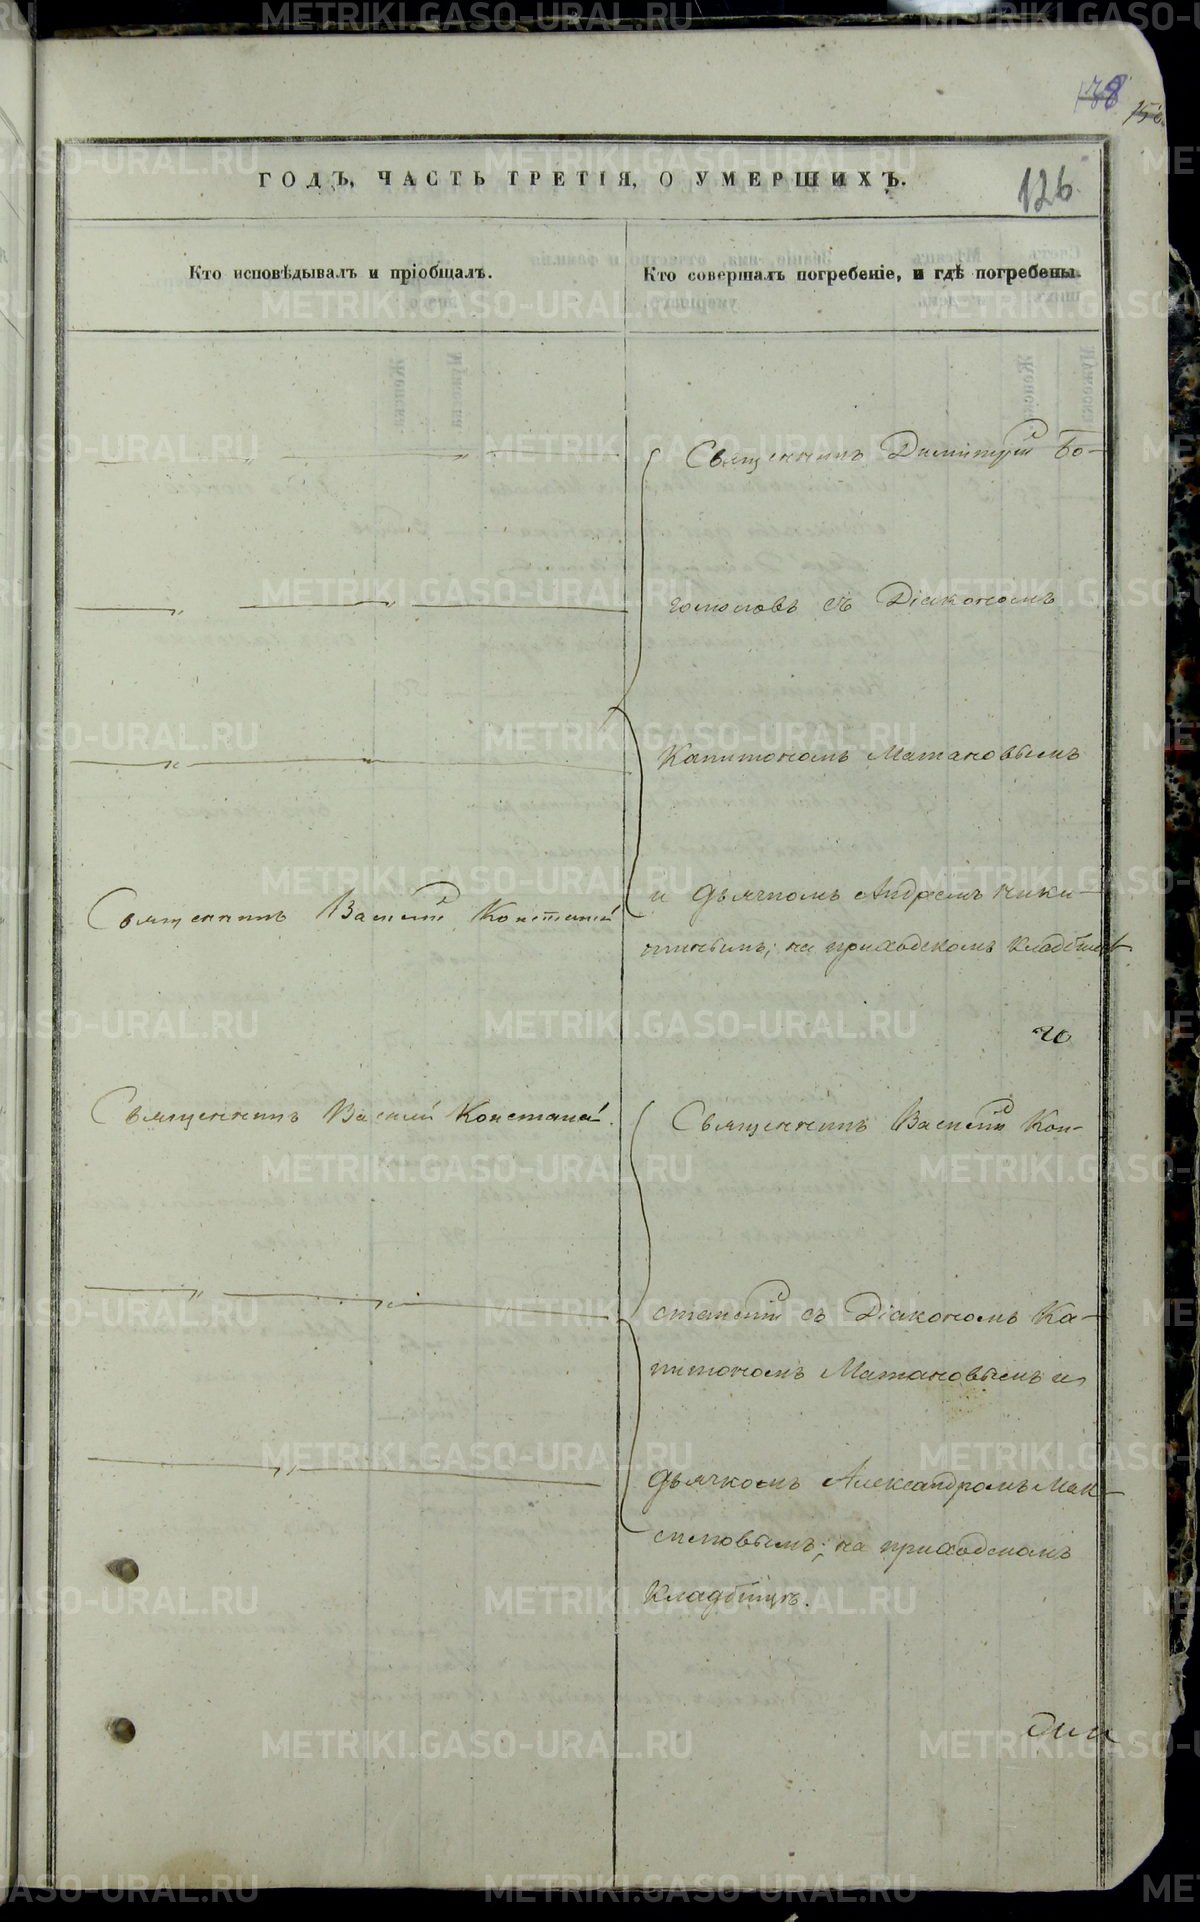 138
126
ГОДЪ, ЧАСТЬ ТРЕТІЯ, О УМЕРШИХЪ.
Кто исповѣдывалъ и пріобщалъ.
Кто совершалъ погребеніе, и гдѣ погребены.
Священникъ Димитрій Бо-
гомоловъ съ Діакономъ
Капитономъ Матановымъ
Священникъ Василій
и дьячкомъ Андреемъ Ники-
тинымъ; на приходскомъ кладбищѣ
го
Священникъ Василій
Священникъ Василій Кон-
съ Діакономъ Ка-
питономъ Матановымъ и
дьячкомъ Александромъ Мак-
симовымъ; на приходскомъ
кладбищѣ.
METRIKI.GASO-URAL.RU